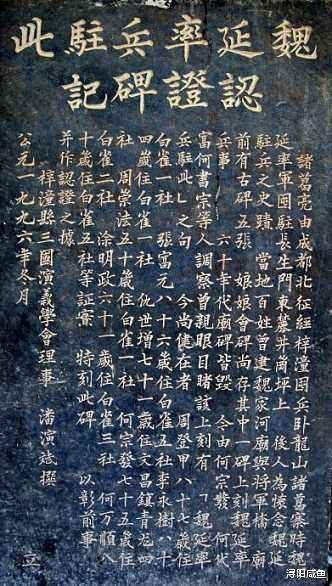 魏延率兵駐此
認證碑記
諸葛亮由成都北征經梓潼囤兵卧龍山諸葛寨時魏
延率軍囤駐長生門東麓牛崗坪上 後人為懷念魏延
駐兵之史蹟 當地百姓曾建魏家河廟與將軍橋 廟
前有古碑五張 娘娘會碑尚存其中一碑上刻魏延率
兵事 六十年代廟碑皆毀 今由何宗發 何代
富何書宗等人調察曾親眼目睹該上刻有「魏延率
兵駐此」之句 今尚健在者 周登甲八十七歲住
白雀一社 張富元八十六歲住白雀五社李永樹八十
四歲住白雀一社 仇世增七十一歲住文昌鎮青龙四
社 周崇法五十歲住白雀一社 何宗發七十五歲住
白雀二社 涂明政六十一歲住白雀三社 何万順八
十歲住白雀五社等証實 特刻此碑 以彰前事
并作認證之據
梓潼縣三國演義學會理事 潘演 撰
公元一九九六年冬月 立
浔阳咸鱼